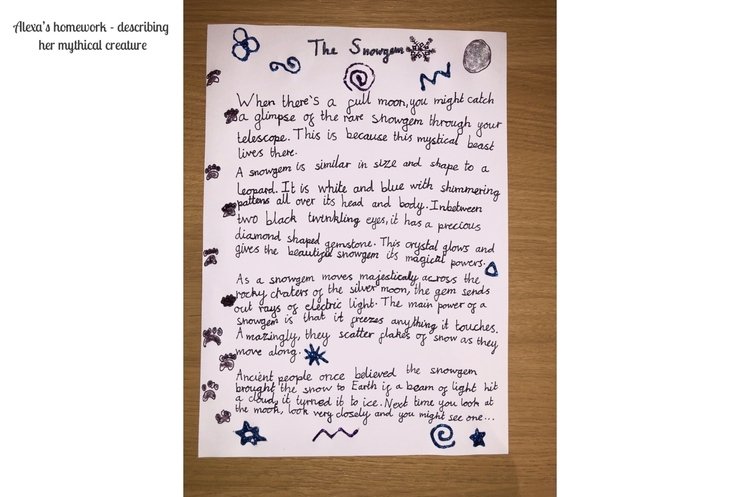 Alexa's homework - describing
her mythical creature
The Snowgem
When there's a full moon, you might catch
a glimpse of the rare snowgem through your
telescope. This is because this mystical beast
lives there.
A snowgem is similar in size and shape to a
leopard. It is white and blue with shimmering
pattens all over its head and body. Inbetween
two black twinkling eyes, it has a precious
diamond shaped gemstone. This crystal glows and
gives the beautiful snowgem its magical powers.
As a snowgem moves majesticaly across the
rocky chaters of the silver moon, the gem sends
out rays of electric light. The main power of a
snowgem is that it freezes anything it touches.
Amazingly, they scatter flakes of snow as they
move along.
Ancient people once believed the snowgem
brought the snow to Earth if a beam of light hit
a cloud, it turned it to ice. Next time you look at
the moon, look very closely and you might see one...